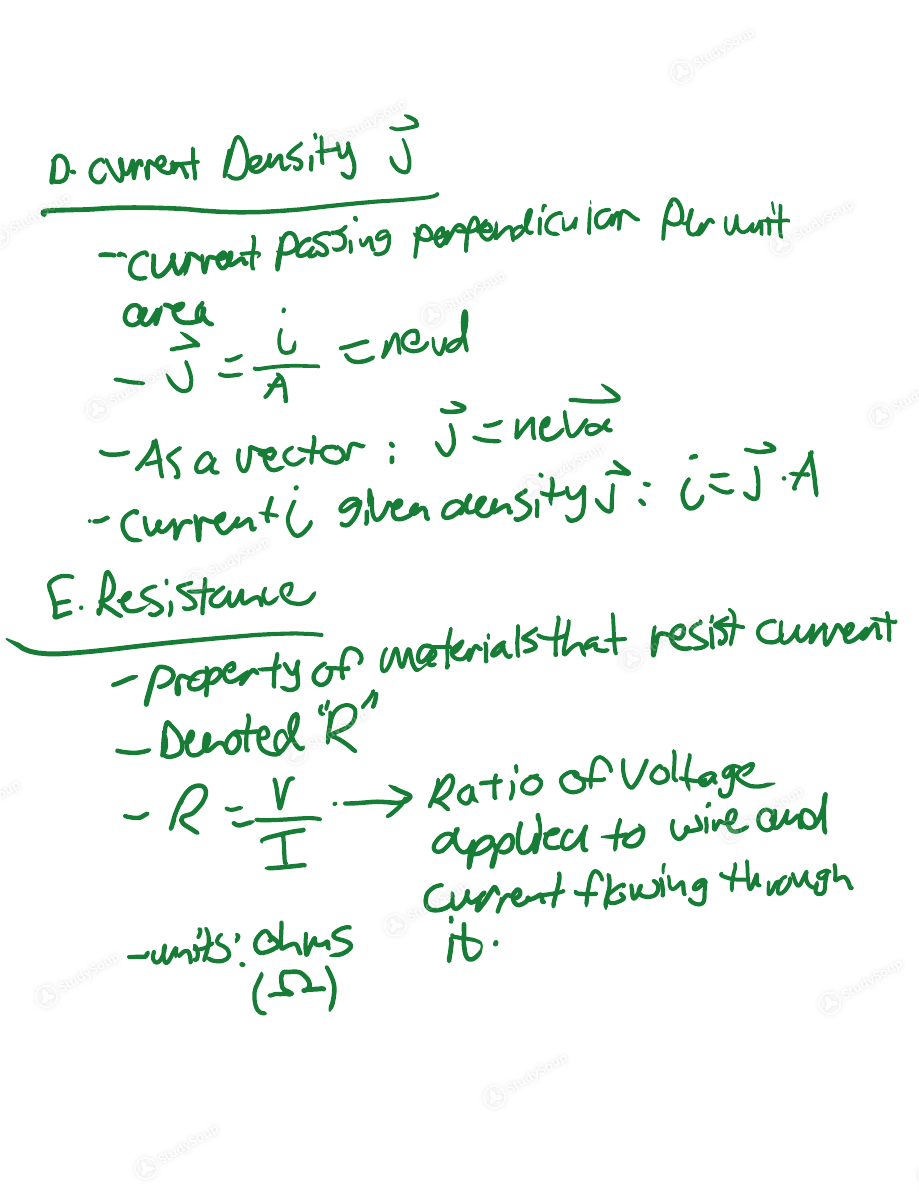 D. Current Density j⃗
- Current passing perpendicular per unit
area
- j⃗ = i/A = nevd
- As a vector: j⃗ = nevd⃗
- Current i given density j⃗: i = j⃗ · A
E. Resistance
- Property of materials that resist current
- Denoted "R"
- R = V/I → Ratio of voltage
applied to wire and
current flowing through
it.
- units: ohms
(Ω)
StudySoup